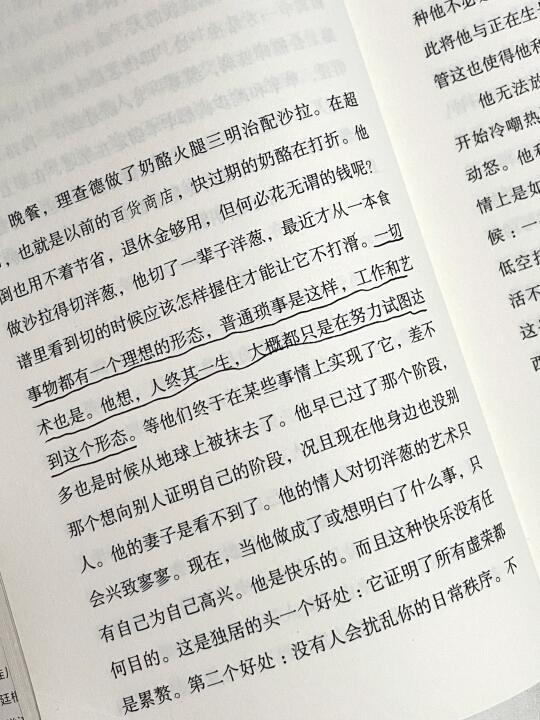 晚餐，理查德做了奶酪火腿三明治配沙拉。在超
，也就是以前的百货商店，快过期的奶酪在打折。他
倒也用不着节省，退休金够用，但何必花无谓的钱呢？
做沙拉得切洋葱，他切了一辈子洋葱，最近才从一本食
谱里看到切的时候应该怎样握住才能让它不打滑。一切
事物都有一个理想的形态，普通琐事是这样，工作和艺
术也是。他想，人终其一生，大概都只是在努力试图达
到这个形态。等他们终于在某些事情上实现了它，差不
多也是时候从地球上被抹去了。他早已过了那个阶段，
那个想向别人证明自己的阶段，况且现在他身边也没别
人。他的妻子是看不到了。他的情人对切洋葱的艺术只
会兴致寥寥。现在，当他做成了或想明白了什么事，只
有自己为自己高兴。他是快乐的。而且这种快乐没有任
何目的。这是独居的头一个好处：它证明了所有虚荣都
是累赘。第二个好处：没有人会扰乱你的日常秩序。不
种他不必
此将他与正在生
管这也使得他和
他无法放
开始冷嘲热
动怒。他和
情上是如
候：一
低空
活不
这
西